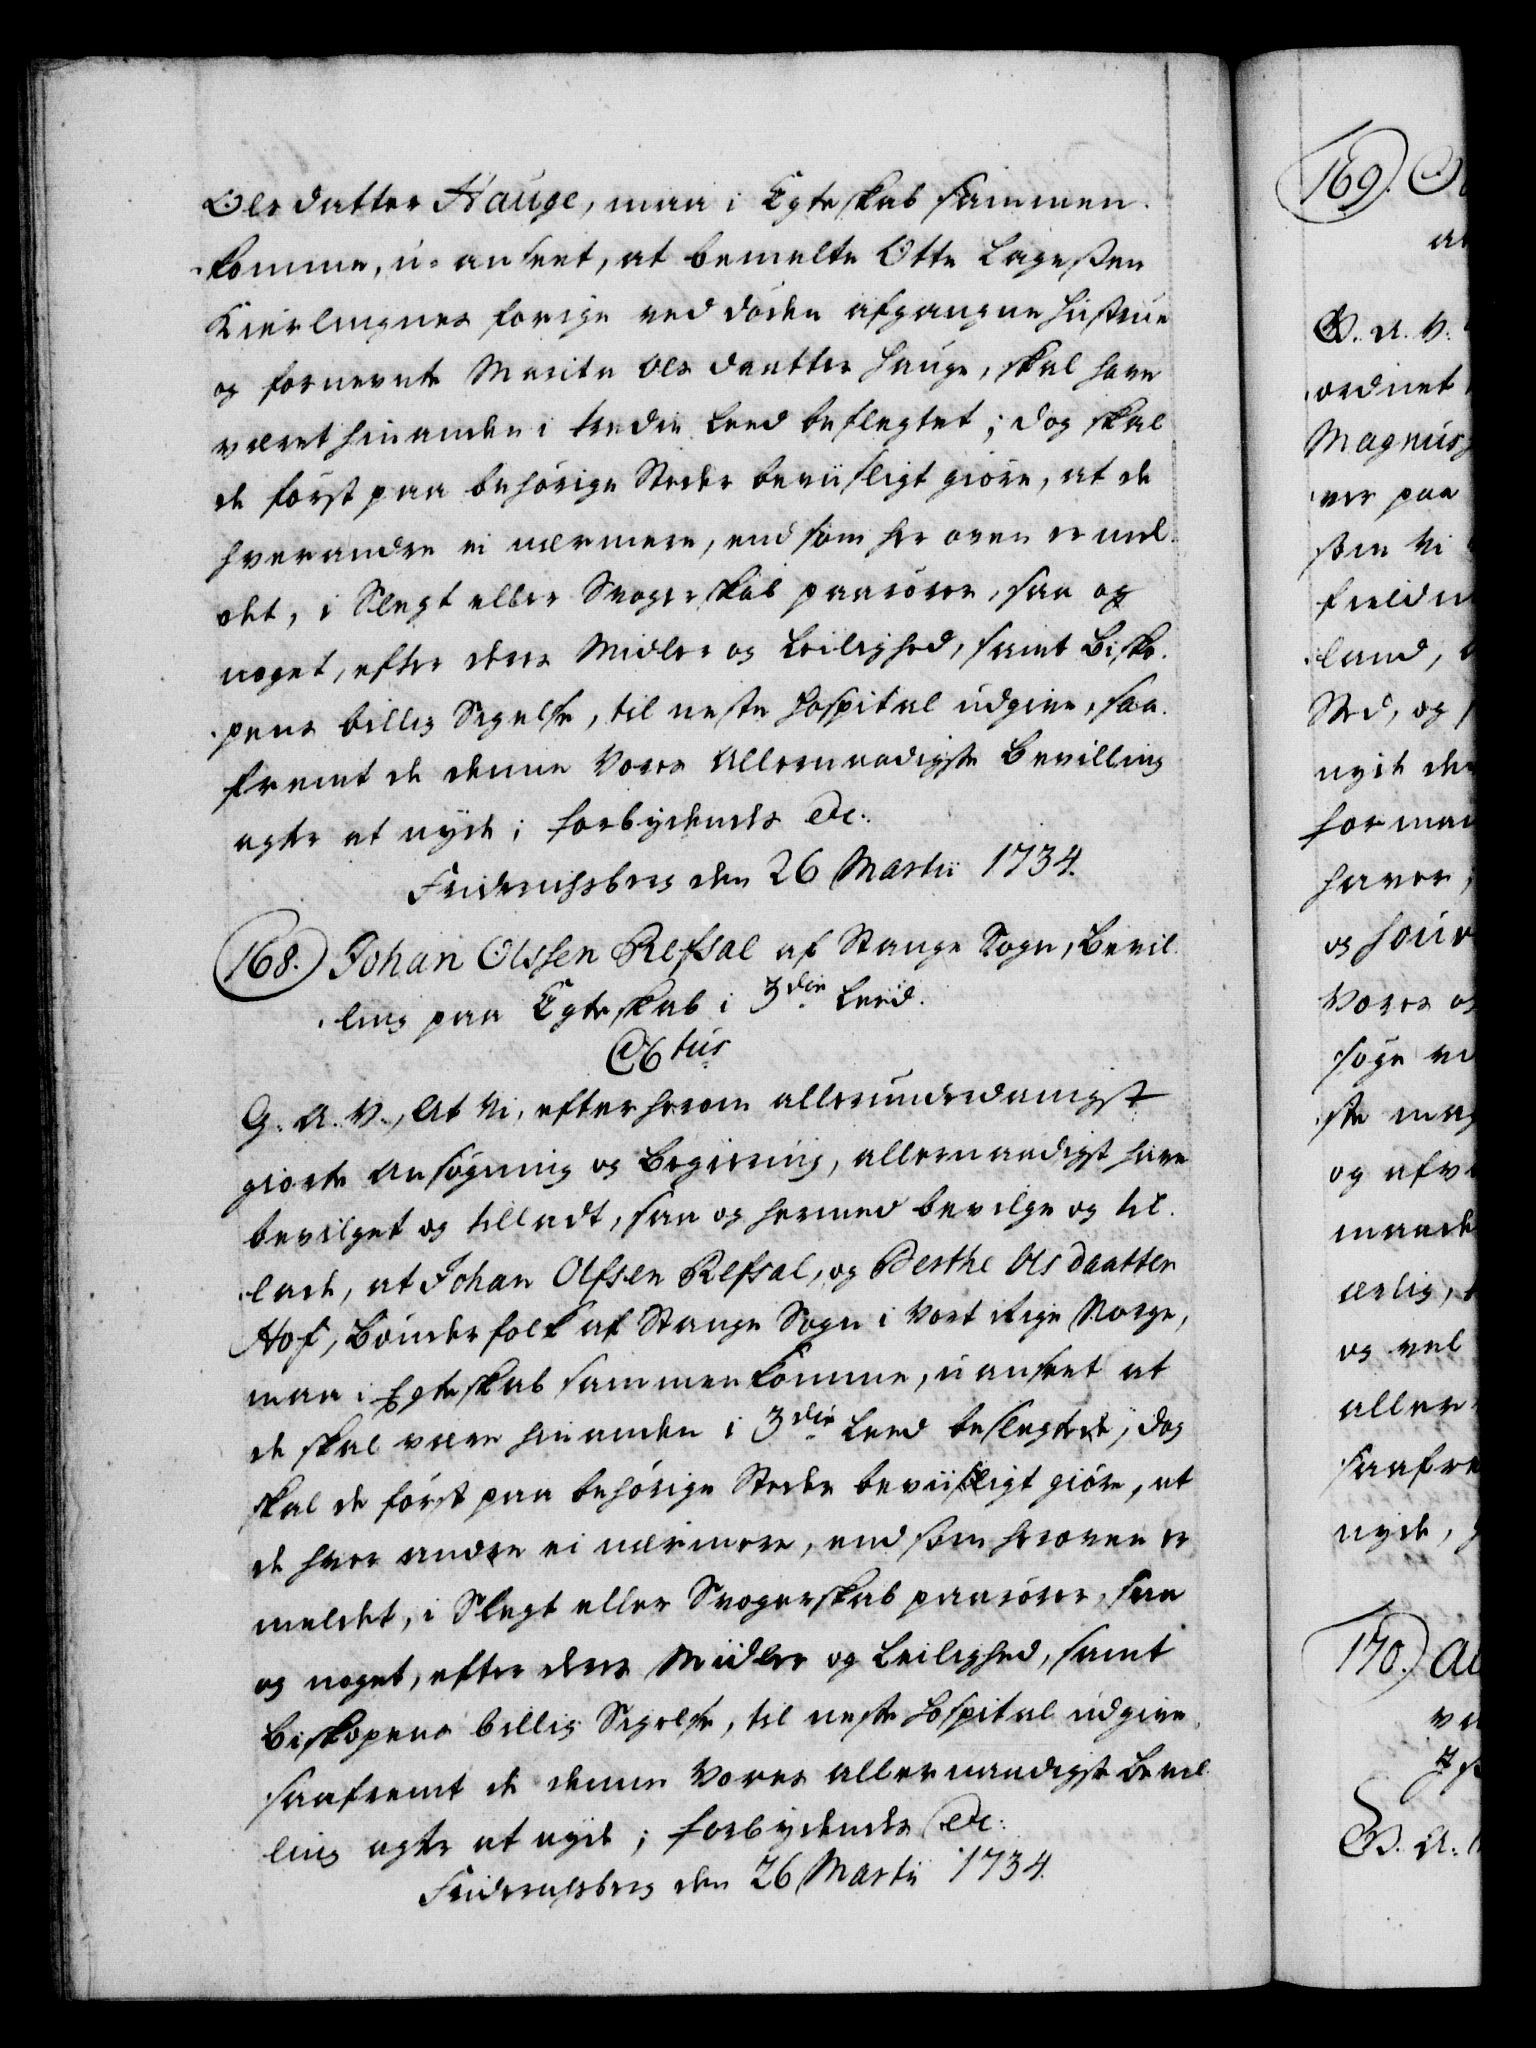 Olsdatter Hauge, maa i Egteskab sammen-
komme, u-anseet, at bemelte Otte Lagessen
Kierlingnes forige ved døden afgangne Hustrue
og fornevnte Marite Ols daatter Hauge, skal have
været hinanden i tredie Leed beslegtet; dog skal
de først paa behørige Steder beviisligt giøre, at de
hverandre ei nærmere, end som her oven er mel-
det, i Slegt eller Svogerskab paarører, saa og
noget, efter deres Midler og Leilighed, samt Bisko-
pens billig Sigelse, til neste Hospital udgive, saa-
fremt de denne Vores Allernaadigste Bevilling
agter at nyde; forbydendes etc:
Friderichsberg den 26 Martii 1734.
168. Johan Olssen Refsal af Stange Sogn, Bevil-
ling paa Egteskab i 3die Leed.
C6tus
G. A. V., At Vi, efter herom allerunderdanigst
giorte Ansøgning og Begiering, allernaadigst have
bevilget og tilladt, saa og hermed bevilge og til-
lade, at Johan Olfsen Refsal, og Berthe Ols daatter
Hof, Bønderfolk af Stange Sogn i Vort Rige Norge,
maa i Egteskab sammenkomme, uanseet at
de skal være hinanden i 3die Leed beslegtede; dog
skal de først paa behørige Steder beviisligt giøre, at
de hver andre ei nærmere, end som heroven er
meldet, i Slegt eller Svogerskab paarører, saa
og noget, efter deres Midler og Leilighed, samt
Biskopens billig Sigelse, til neste Hospital udgive,
saafremt de denne Vores allernaadigste Bevil-
ling agter at nyde; forbydendes etc:
Friderichsberg den 26 Martii 1734.
169.
G. A. V.
ordnet
Magnus
ver paa
som Vi
land,
Sted, og
nyde
haver
og
Vores
søge
og
maade
ærlig,
og vel
aller
saafre
nyde,
170.
G. A.